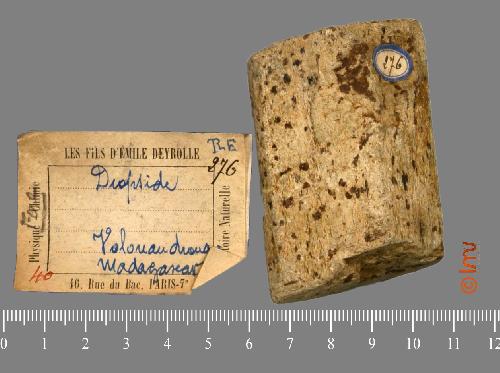 LES FILS D'ÉMILE DEYROLLE
R.E
276
Diopside
Madagascar
46, Rue du Bac, PARIS-7ᵉ
Physique
Histoire Naturelle
40
276
0 1 2 3 4 5 6 7 8 9 10 11 12